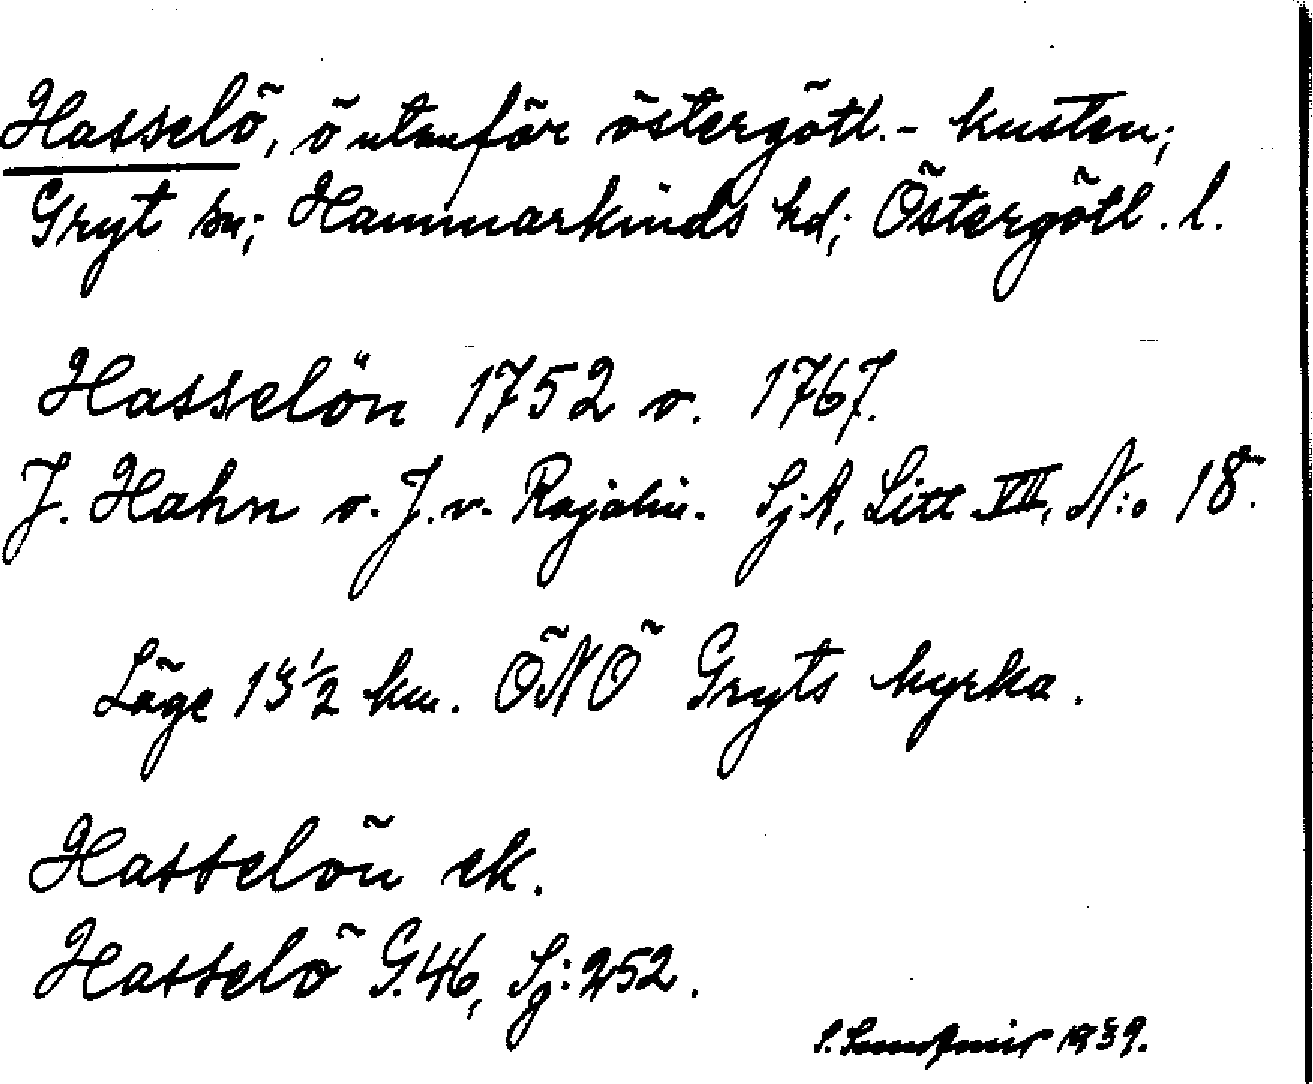 Hasselö, ö utanför östergötl.- kusten;
Gryt sn; Hammarkinds hd; Östergötl. l.
Hasselön 1752 o. 1767.
J. Hahn o. J. v. Rajalin. SjA, Litt VII, N:o 18.
Läge 13½ km. ÖNÖ Gryts kyrka.
Hasselön ek.
Hasselö G.46, Sj:252.
1939.